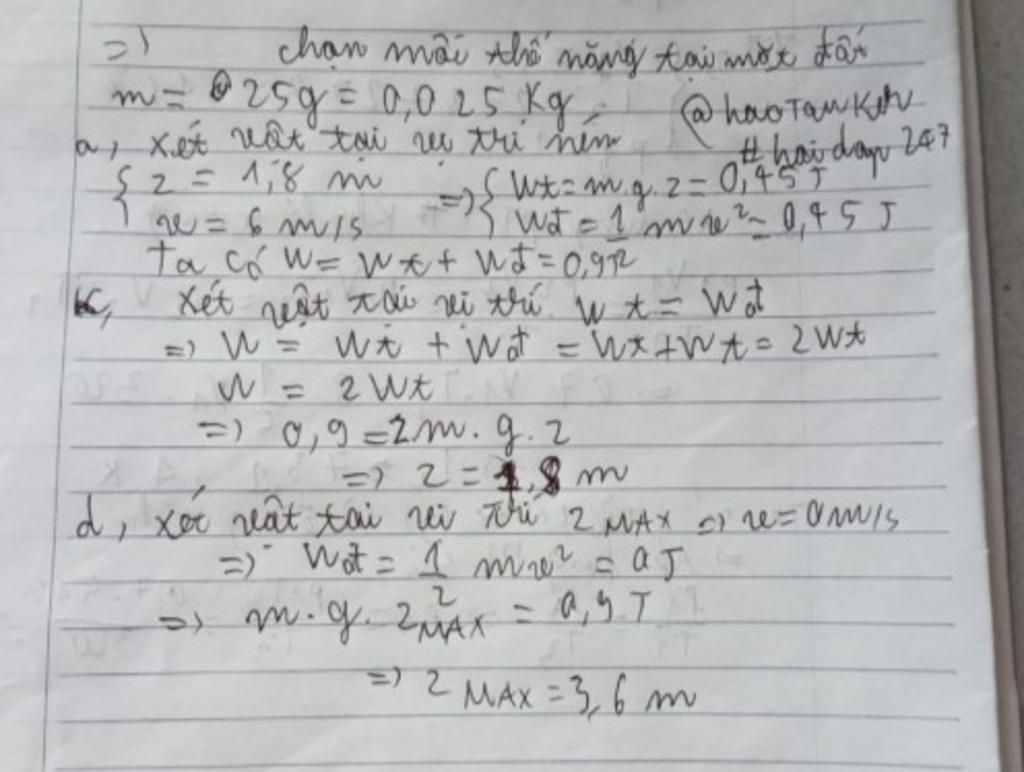 => chọn mốc thế năng tại mặt đất
m = 25g = 0,025 Kg @haoTamKen
a, xét vật tại vị trí ném #hoidap247
{ z = 1,8 m => { Wt = m.g.z = 0,45 J
v = 6 m/s Wđ = 1/2 mv² = 0,45 J
Ta có W = Wt + Wđ = 0,9J
c, xét vật tại vị trí Wt = Wđ
=> W = Wt + Wđ = Wt + Wt = 2Wt
W = 2Wt
=> 0,9 = 2m.g.z
=> z = 1,8 m
d, xét vật tại vị trí z MAX => v = 0m/s
=> Wđ = 1/2 mv² = 0J
=> m.g. z MAX = 0,9 J
=> z MAX = 3,6 m